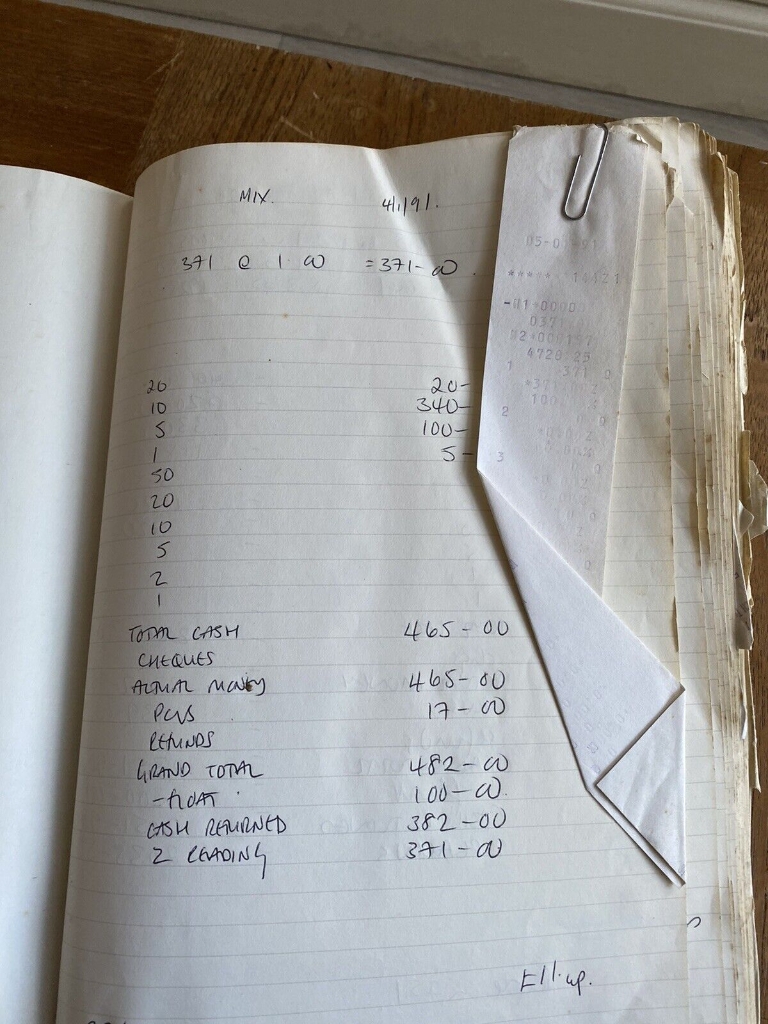 MIX. 4/1/91.
371 @ 1.00 = 371-00.
20 20-
10 340-
5 100-
1 5-
50
20
10
5
2
1
TOTAL CASH 465-00
CHEQUES
ACTUAL MONEY 465-00
PCVS 17-00
REFUNDS
GRAND TOTAL 482-00
-FLOAT 100-00.
CASH RETURNED 382-00
Z READING 371-00
£11.up.
***** 14421
4728 25
1
2
3